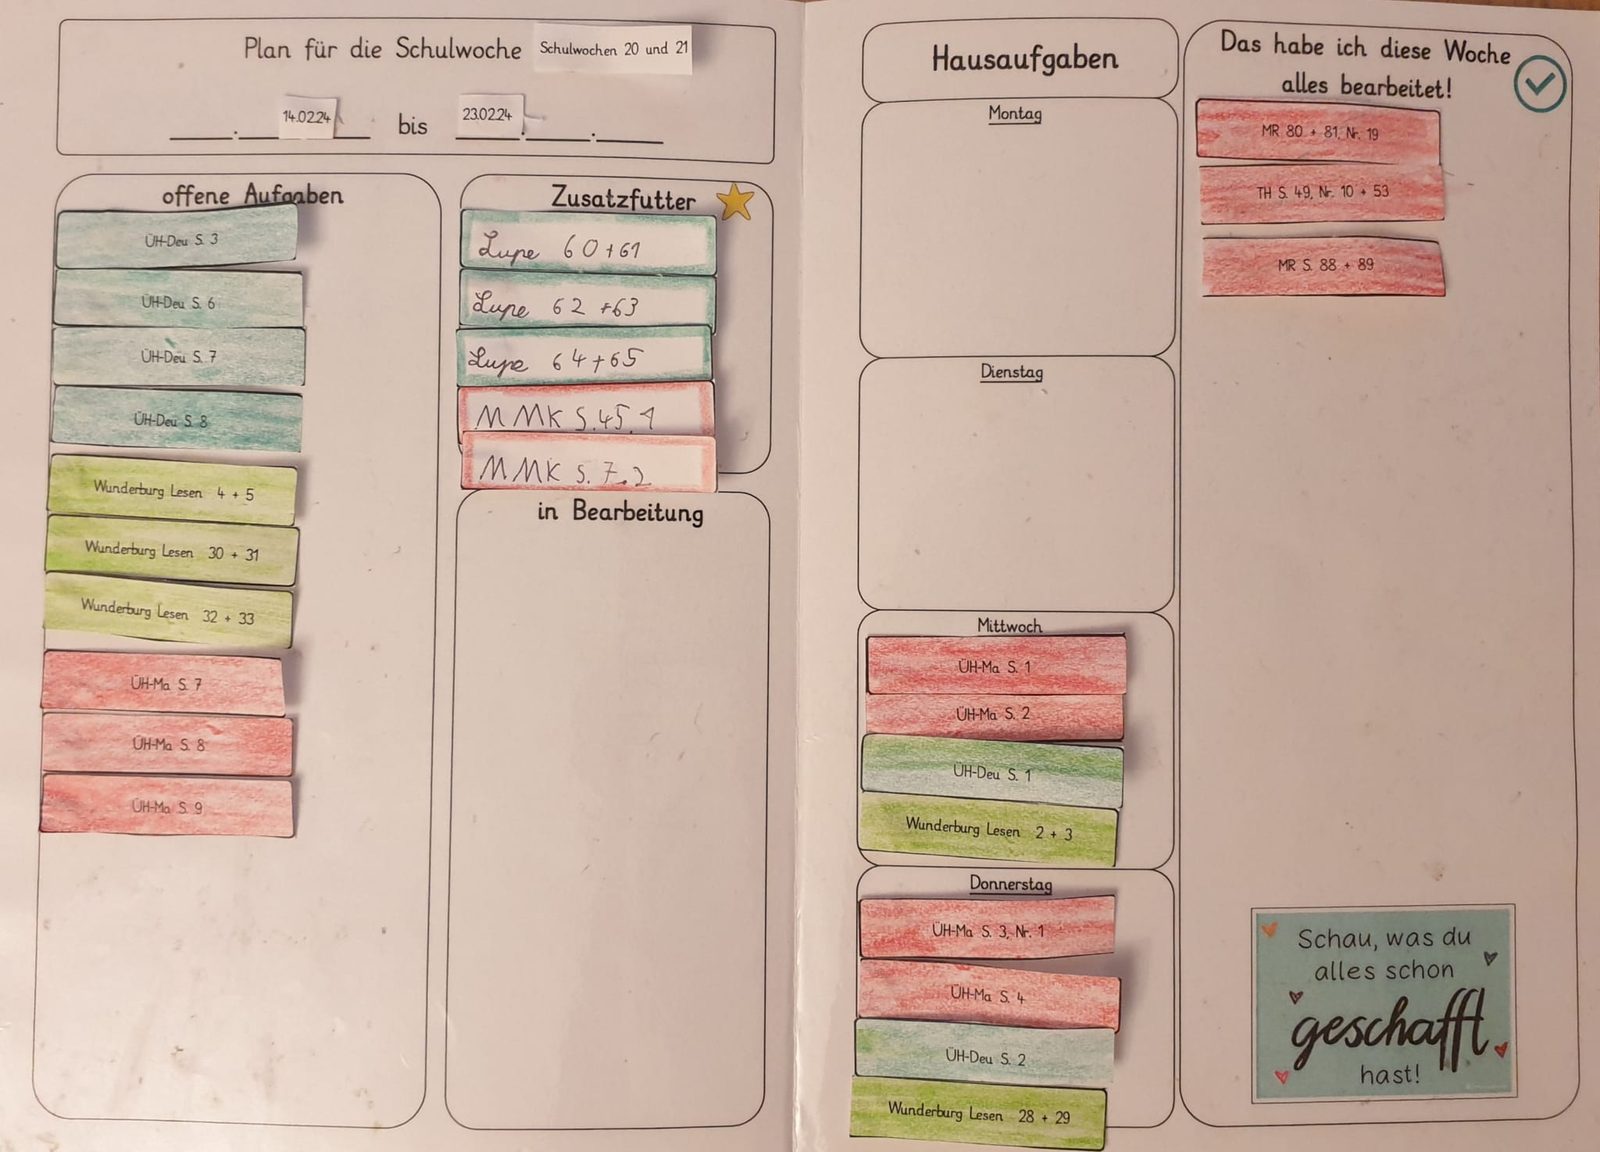 Plan für die Schulwoche Schulwochen 20 und 21
14.02.24 bis 23.02.24
offene Aufgaben
ÜH-Deu S. 3
ÜH-Deu S. 6
ÜH-Deu S. 7
ÜH-Deu S. 8
Wunderburg Lesen 4 + 5
Wunderburg Lesen 30 + 31
Wunderburg Lesen 32 + 33
ÜH-Ma S. 7
ÜH-Ma S. 8
ÜH-Ma S. 9
Zusatzfutter
Lupe 60+61
Lupe 62+63
Lupe 64+65
MMK S.45.1
MMK S.7.2
in Bearbeitung
Hausaufgaben
Montag
Dienstag
Mittwoch
ÜH-Ma S. 1
ÜH-Ma S. 2
ÜH-Deu S. 1
Wunderburg Lesen 2 + 3
Donnerstag
ÜH-Ma S. 3, Nr. 1
ÜH-Ma S. 4
ÜH-Deu S. 2
Wunderburg Lesen 28 + 29
Das habe ich diese Woche
alles bearbeitet!
MR 80 + 81, Nr. 19
TH S. 49, Nr. 10 + 53
MR S. 88 + 89
Schau, was du
alles schon
geschafft
hast!